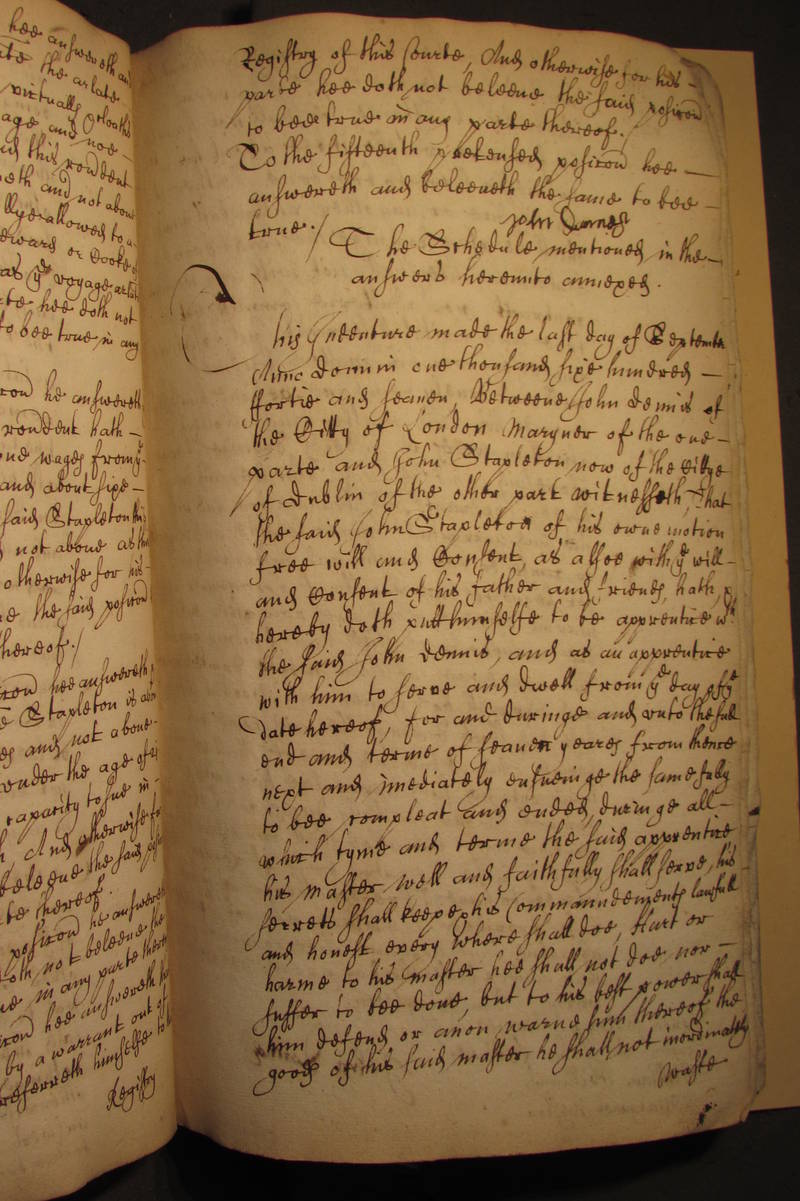 hee answereth and
the arlate
victualls
age and noe
this rendent
and not about
allowed to a
or Cooke
as ye voyage arlate
hee doth not
to bee true in any
he answereth
rendent hath
wages from ye
and about sixe
said Stapleton
not above as
otherwise for his
the said position
thereof./
hee answereth
Stapleton is
and not above
under the age of
capacity to sue in
And otherwise for
beleeve the said
hereof.
position he answereth
doth not beleeve the
in any parte thereof
answereth
by a warrant out of
referreth himselfe to
Registry
Registry of this Courte, And otherwise for his
parte hee doth not beleeve the said position
to bee true in any parte thereof./
To the fifteenth pretensed position hee
answereth and beleeveth the same to bee
true./
John Dennes
The Schedule mentioned in the
answers hereunto annexed.
This Indenture made the last day of September
Anno domini one thousand sixe hundred
ffortie and seaven, Betweene John Dennis of
the Citty of London Maryner of the one
parte and John Stapleton now of the Cittye
of Dublin of the other part witnesseth, That
the said John Stapleton of his owne motion
free will and Consent, as alsoe with ye will
and Consent of his father and friends, hath, &
hereby doth putt himselfe to be apprentice wth
the said John Dennis, and as an apprentice
with him to serve and dwell from ye day of ye
date hereof, for and duringe and unto the full
end and terme of seaven yeares from thence
next and imediately ensueinge the same fully
to bee compleat and ended, duringe all
which tyme and terme the said apprentice
his master well and faithfully shall serve, his
secretts shall keepe, his Commaundements lawfull
and honest every where shall doe, Hurt or
harme to his master hee shall not doe nor
suffer to bee done, but to his best power shall
him defend or anon warne him thereof the
goods of his said master he shall not inordinately
waste